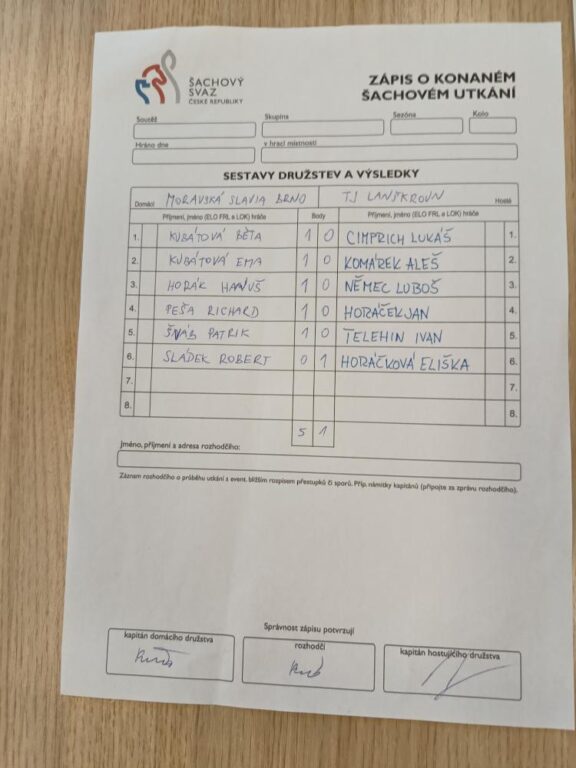 ŠACHOVÝ
SVAZ
ČESKÉ REPUBLIKY
ZÁPIS O KONANÉM
ŠACHOVÉM UTKÁNÍ
Soutěž Skupina Sezóna Kolo
Hráno dne v hrací místnosti
SESTAVY DRUŽSTEV A VÝSLEDKY
Domácí MORAVSKÁ SLAVIA BRNO TJ LANŠKROUN Hosté
Příjmení, jméno (ELO FRL a LOK) hráče Body Příjmení, jméno (ELO FRL a LOK) hráče
1. KUBÁTOVÁ BĚTA 1 0 CIMPRICH LUKÁŠ 1.
2. KUBÁTOVÁ EMA 1 0 KOMÁREK ALEŠ 2.
3. HORÁK HANUŠ 1 0 NĚMEC LUBOŠ 3.
4. PEŠA RICHARD 1 0 HORÁČEK JAN 4.
5. ŠNÁB PATRIK 1 0 TELEHIN IVAN 5.
6. SLÁDEK ROBERT 0 1 HORÁČKOVÁ ELIŠKA 6.
7. 7.
8. 8.
5 1
Jméno, příjmení a adresa rozhodčího:
Záznam rozhodčího o průběhu utkání s event. bližším rozpisem přestupků či sporů. Příp. námitky kapitánů (připojte za zprávu rozhodčího).
Správnost zápisu potvrzují
kapitán domácího družstva rozhodčí kapitán hostujícího družstva